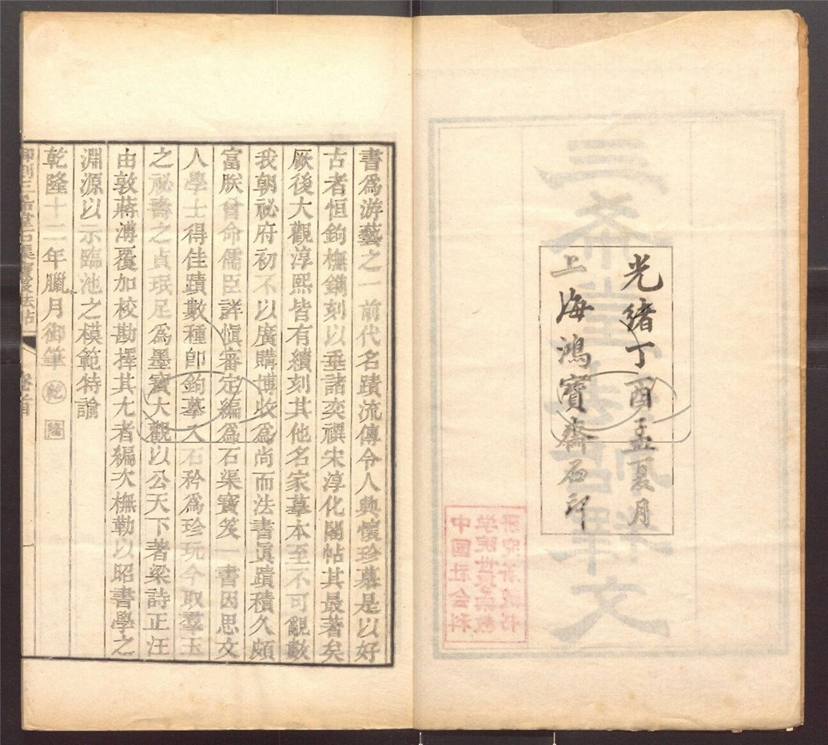 光緒丁酉孟夏月
上海鴻寶齋石印
三希堂法帖釋文
中國社会科
学院世界宗教
研究所藏书
書爲游藝之一前代名蹟流傳令人興懷珍慕是以好
古者恒鉤橅鐫刻以垂諸奕禩宋淳化閣帖其最著矣
厥後大觀淳熙皆有續刻其他名家摹本至不可覼數
我朝祕府初不以廣購博收爲尚而法書眞蹟積久頗
富朕曾命儒臣詳愼審定編爲石渠寶笈一書因思文
人學士得佳蹟數種卽鉤摹入石矜爲珍玩今取羣玉
之祕壽之貞珉足爲墨寶大觀以公天下著梁詩正汪
由敦蔣溥覆加校勘擇其尤者編次橅勒以昭書學之
淵源以示臨池之模範特諭
乾隆十二年臘月御筆 乾 隆
御刻三希堂石渠寶笈法帖 卷首